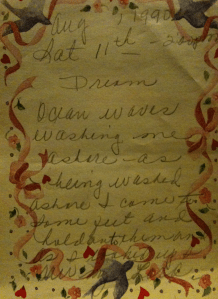 Aug , 1990
Sat 11th - 2:00
Dream
Ocean waves
washing me
ashore - as
I being washed
ashore I come to
some feet and
hold onto them
as